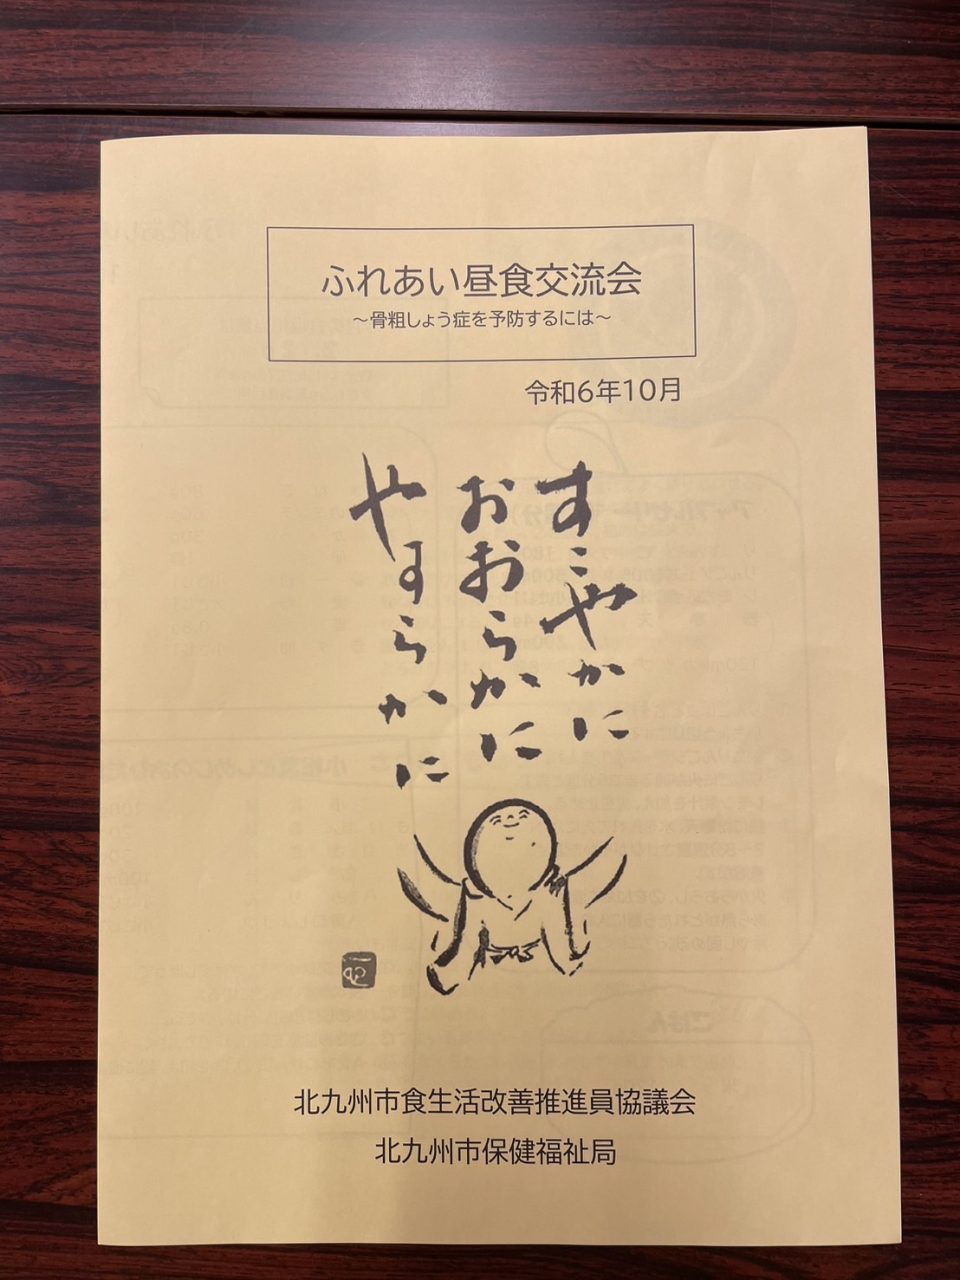 ふれあい昼食交流会
～骨粗しょう症を予防するには～
令和6年10月
すこやかに
おおらかに
やすらかに
北九州市食生活改善推進員協議会
北九州市保健福祉局